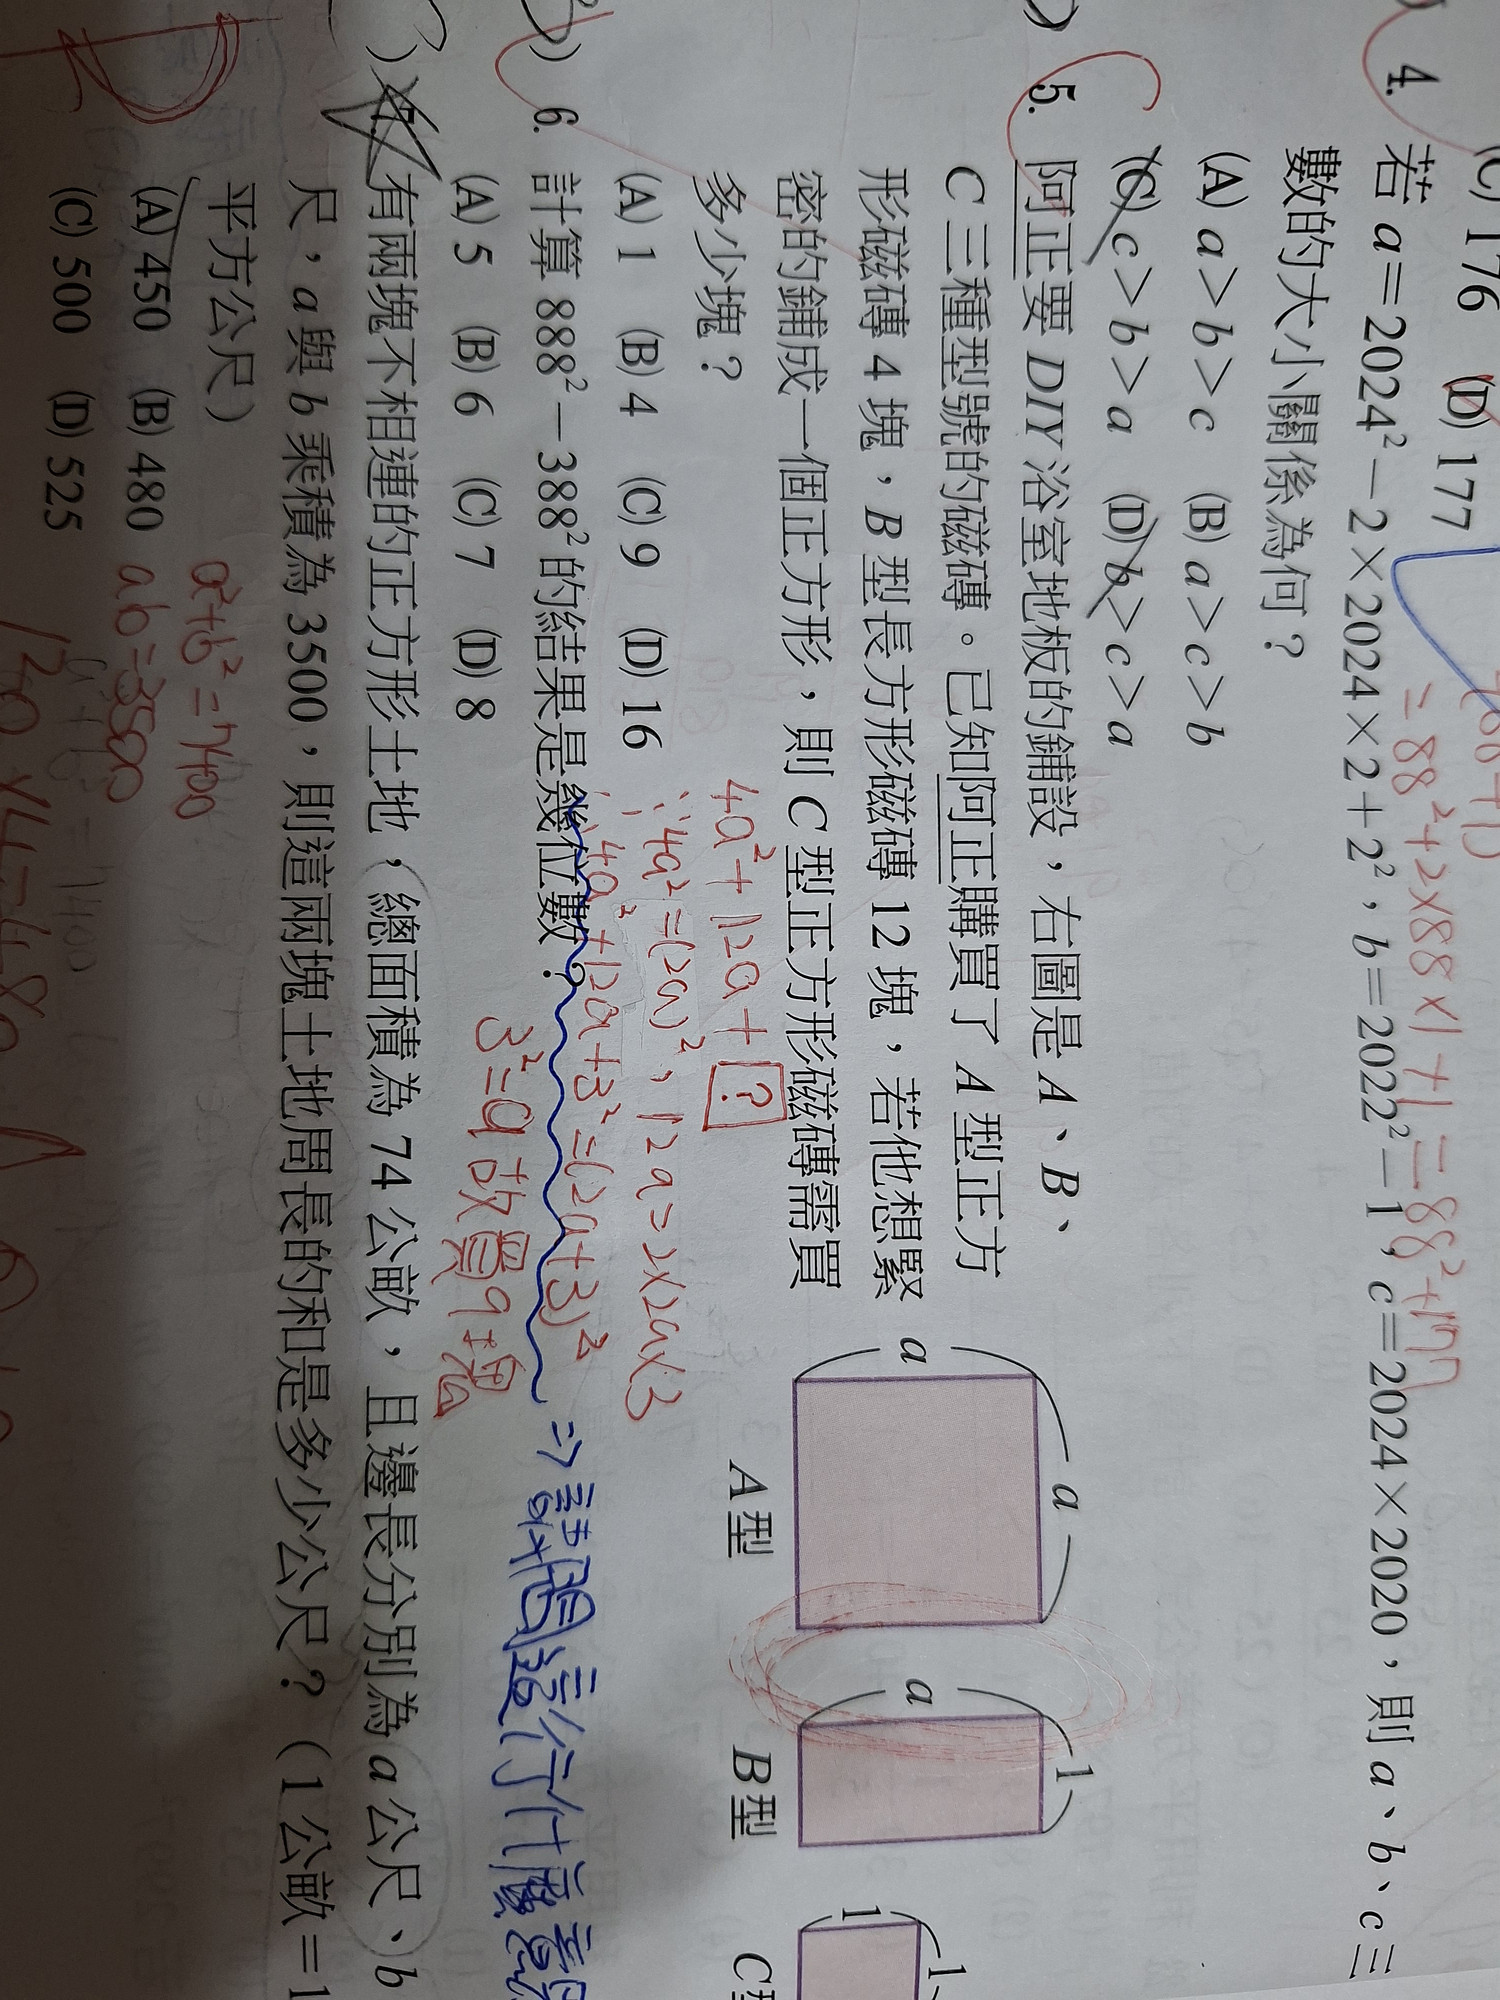 (C) 176 (D) 177
= 88²+2×88×1+1 = 88²+177
4. 若 a＝2024²－2×2024×2＋2²，b＝2022²－1，c＝2024×2020，則 a、b、c 三
數的大小關係為何？
(A) a＞b＞c (B) a＞c＞b
(C) c＞b＞a (D) b＞c＞a
5. 阿正要 DIY 浴室地板的鋪設，右圖是 A、B、
C 三種型號的磁磚。已知阿正購買了 A 型正方
形磁磚 4 塊，B 型長方形磁磚 12 塊，若他想緊
密的鋪成一個正方形，則 C 型正方形磁磚需買
多少塊？
a
a
A型
a
1
B型
1
1
C型
4a²+12a+?
(A) 1 (B) 4 (C) 9 (D) 16
∵4a²=(2a)²，12a=2×2a×3
∴4a²+12a+3²=(2a+3)²
3²=9 故買9塊
⇒ 請問這行什麼意思
6. 計算 888²－388² 的結果是幾位數？
(A) 5 (B) 6 (C) 7 (D) 8
7. 有兩塊不相連的正方形土地，總面積為 74 公畝，且邊長分別為 a 公尺、b
尺，a 與 b 乘積為 3500，則這兩塊土地周長的和是多少公尺？（1 公畝＝1
平方公尺）
a²+b²=7400
(A) 450 (B) 480
ab=3500
(C) 500 (D) 525